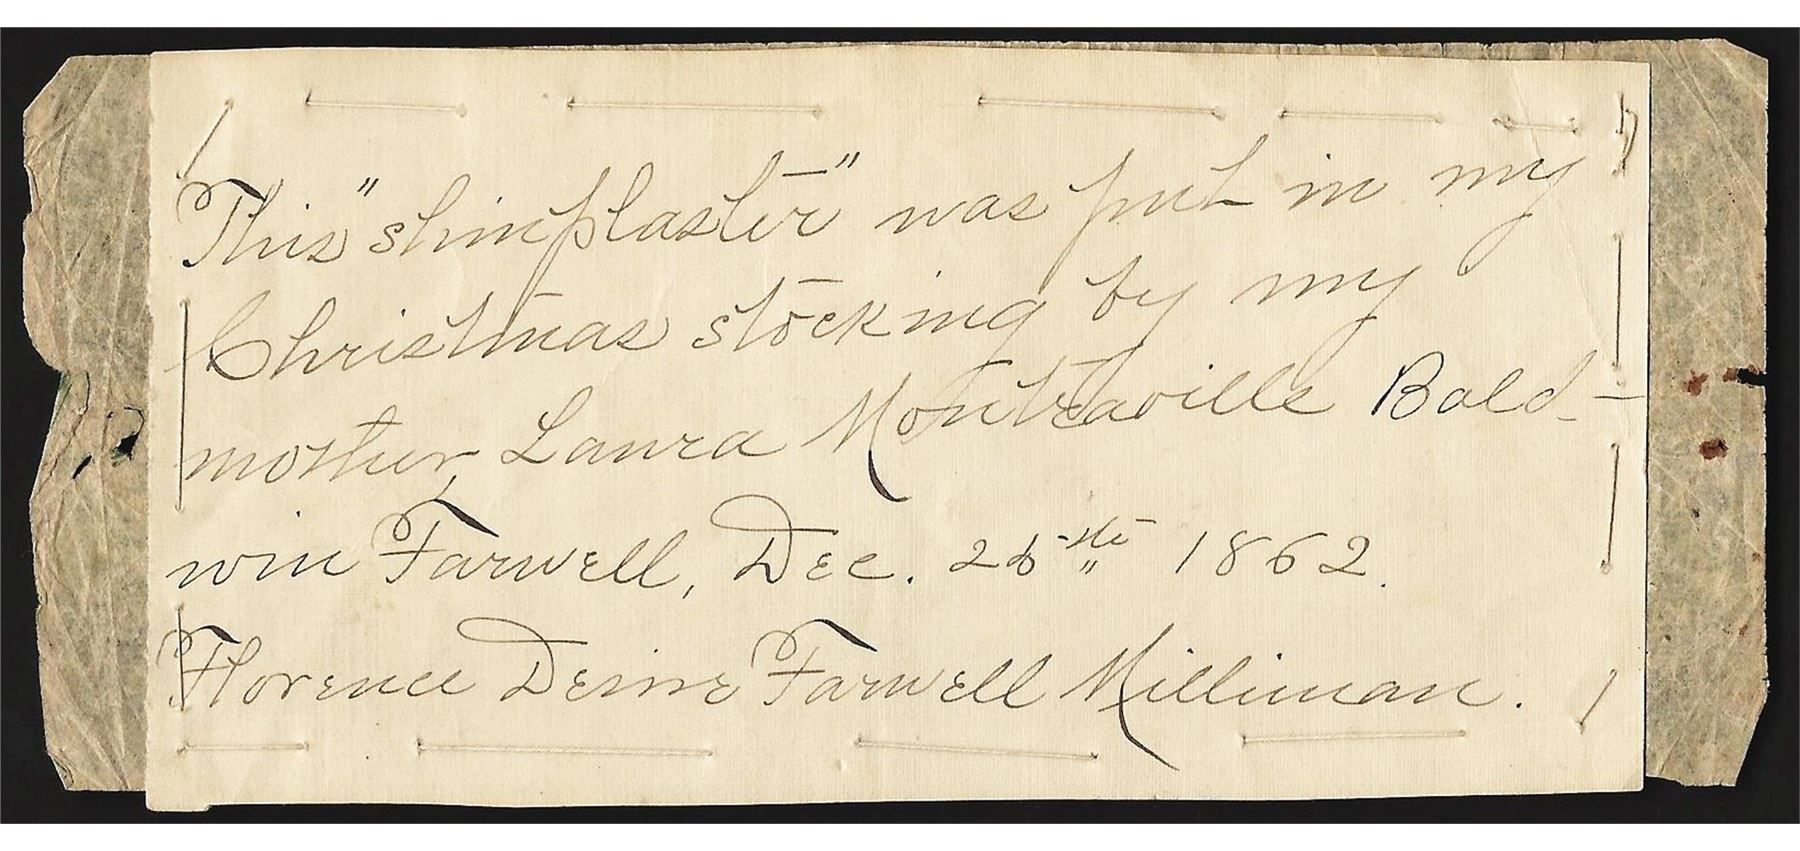 This "shinplaster" was put in my
Christmas stocking by my
mother, Laura Montraville Bald-
win Farwell, Dec. 25th 1862.
Florence Farwell Milliman.